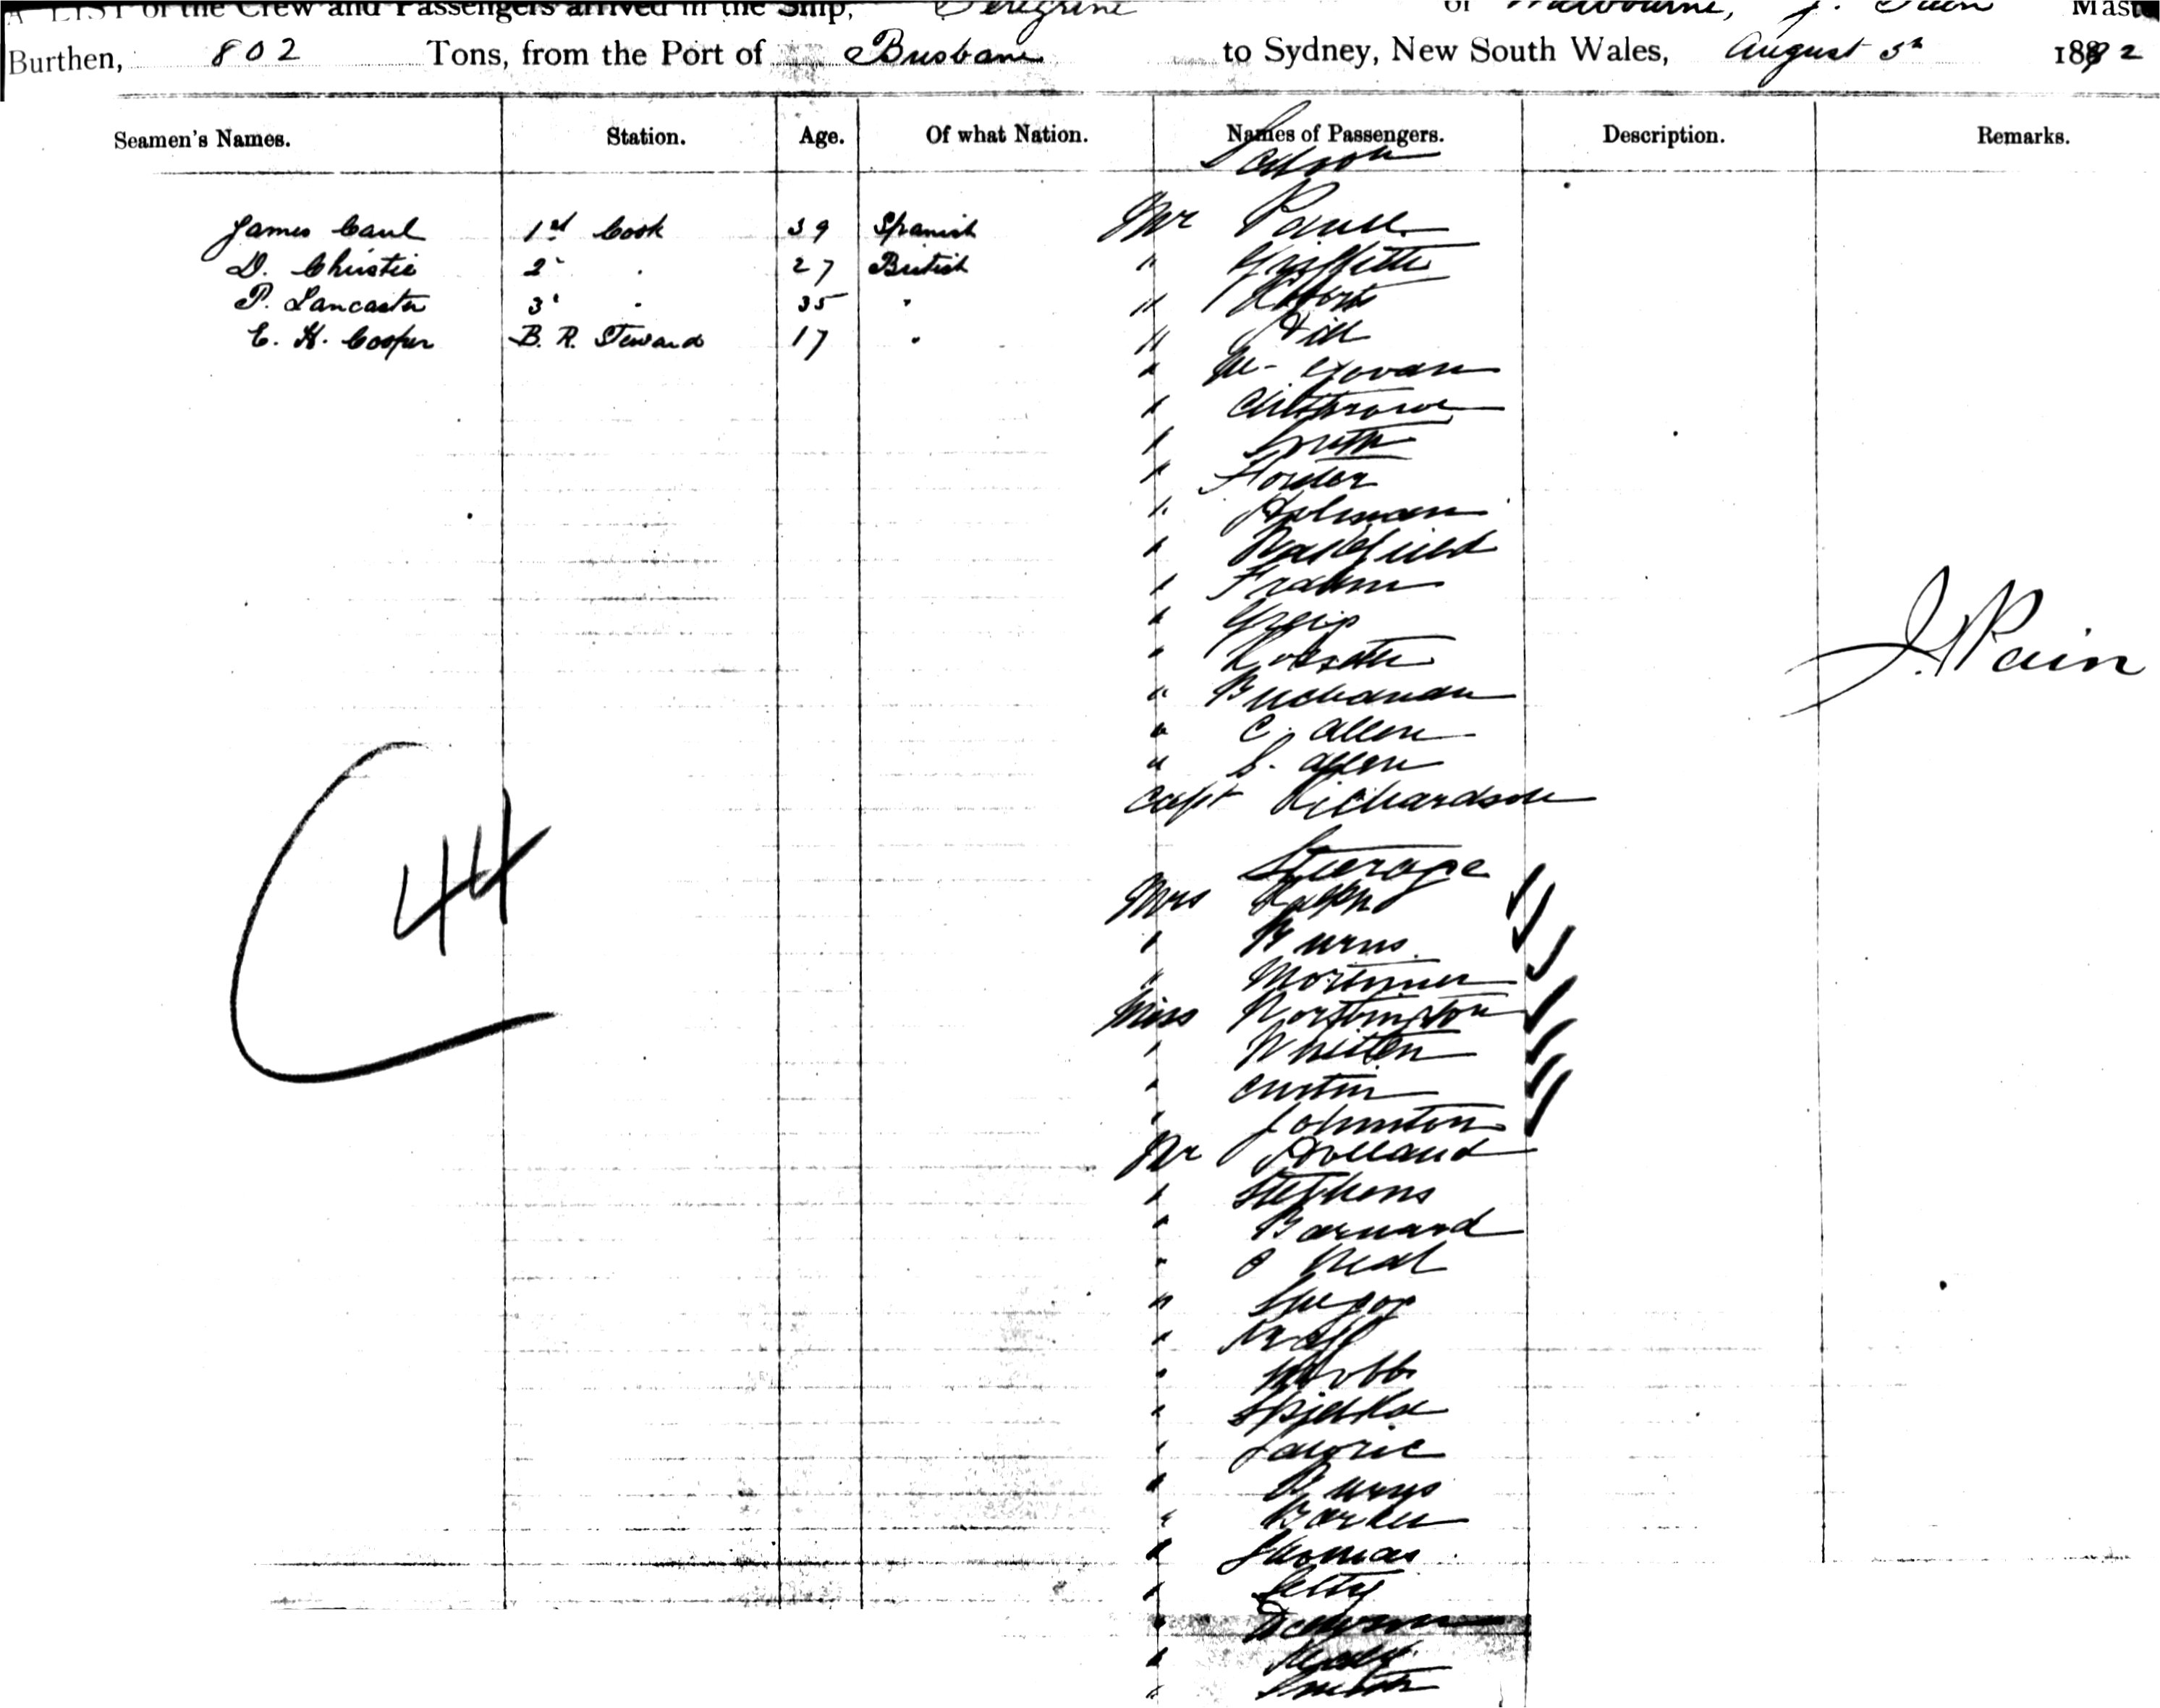 A LIST of the Crew and Passengers arrived in the Ship, Peregrine of Melbourne, J. Pain Mast
Burthen, 802 Tons, from the Port of Brisbane to Sydney, New South Wales, August 5th 1892
Seamen's Names. Station. Age. Of what Nation. Names of Passengers. Description. Remarks.
Saloon
James Caul 1st Cook 39 Spanish Mr
D. Christie 2 " 27 British " Griffiths
P. Lancaster 3 " 35 " " Roberts
E. H. Cooper B. R. Steward 17 " " Hill
" Mc Govan
"
" Smith
"
" Holman
"
" Frahm
" Greig
"
" Buchanan
" C. Allen
" S. Allen
Capt Richardson
J. Pain
44
Steerage
Mrs Ralph
" Burns
" Mortimer
Miss Worthington
" Whitten
" Curtin
" Johnston
Mr Holland
" Stephens
" Barnard
" O Neal
"
"
" Mobb
"
" Laurie
" Burns
" Barker
" Thomas
"
"
"
"